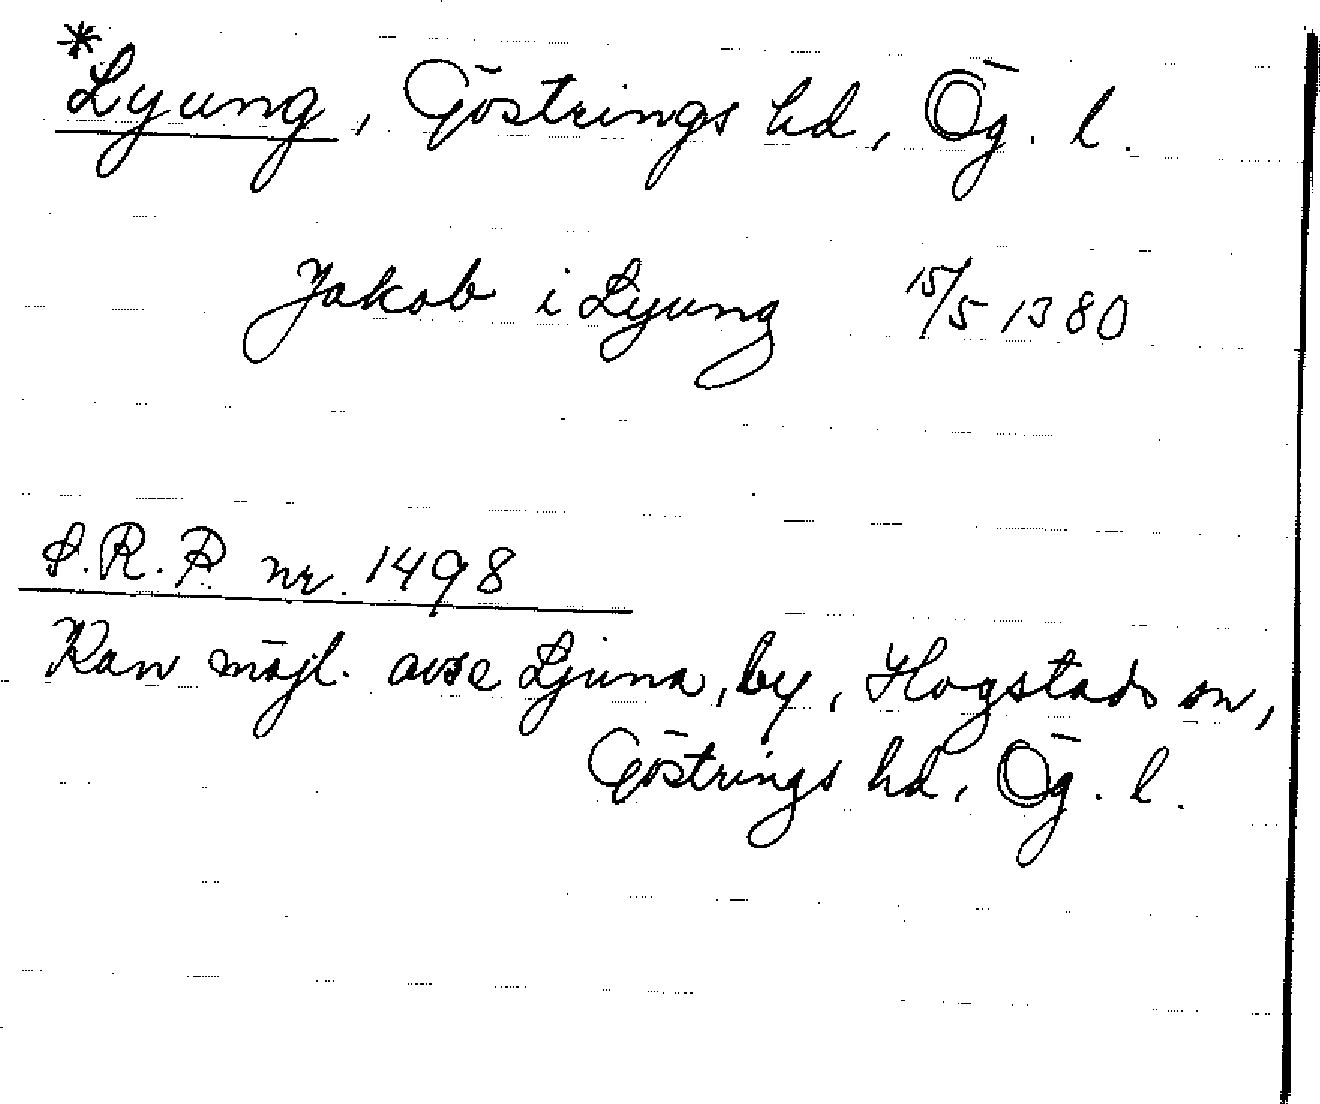 *Lyung, Göstrings hd, Ög. l.
Jakob i Lyung 15/5 1380
S.R.P. nr. 1498
Kan möjl. avse Ljuna, by, Hogstads sn,
Göstrings hd, Ög. l.